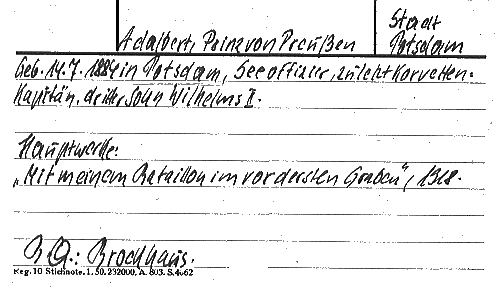 Stadt
Adalbert, Prinz von Preußen Potsdam
Geb. 14.7.1884 in Potsdam, Seeoffizier, zuletzt Korvetten-
Kapitän, dritter Sohn Wilhelms II.
Hauptwerke:
„Mit meinem Bataillon im vordersten Graben", 1918.
B.Q.: Brockhaus.
Reg. 10 Stichnote. 1. 50. 232000. A. 803. S. 4062